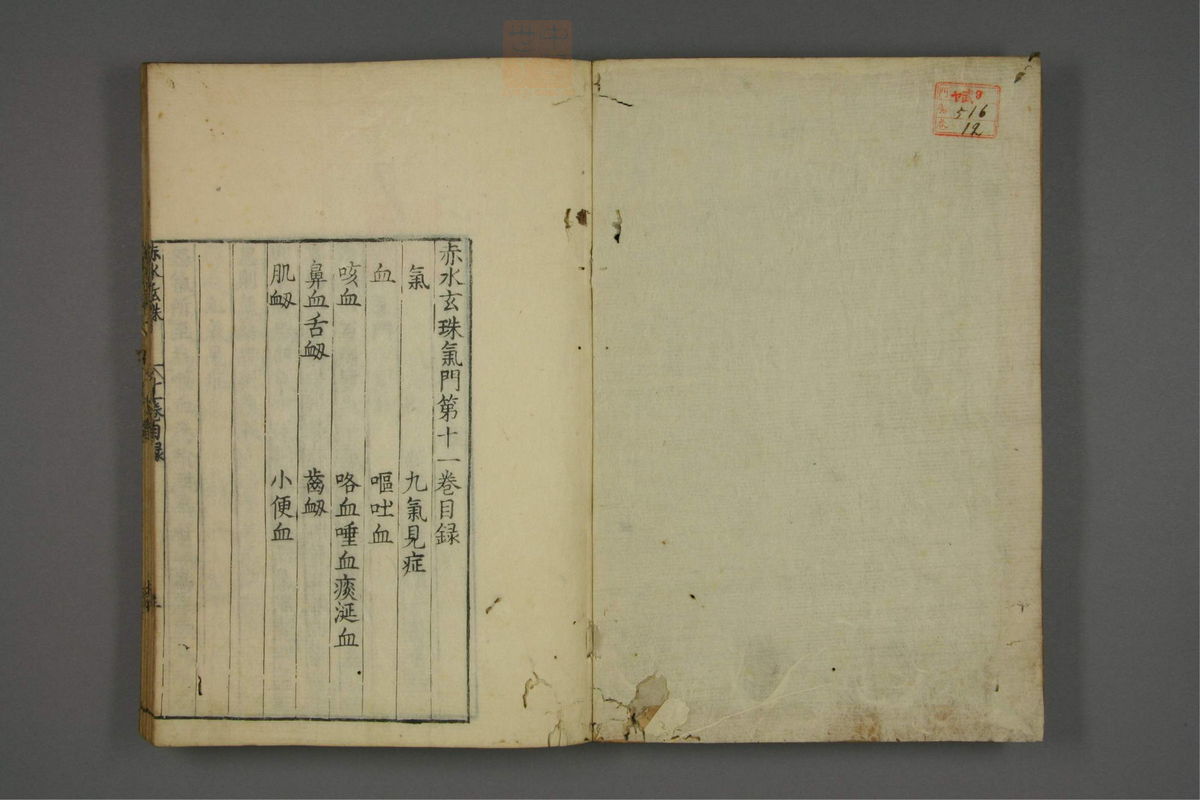 赤水玄珠氣門第十一卷目録
氣　九氣見症
血　嘔吐血
咳血　咯血唾血痰涎血
鼻血舌衂　齒衂
肌衂　小便血
赤水玄珠
十一卷目録
516
12